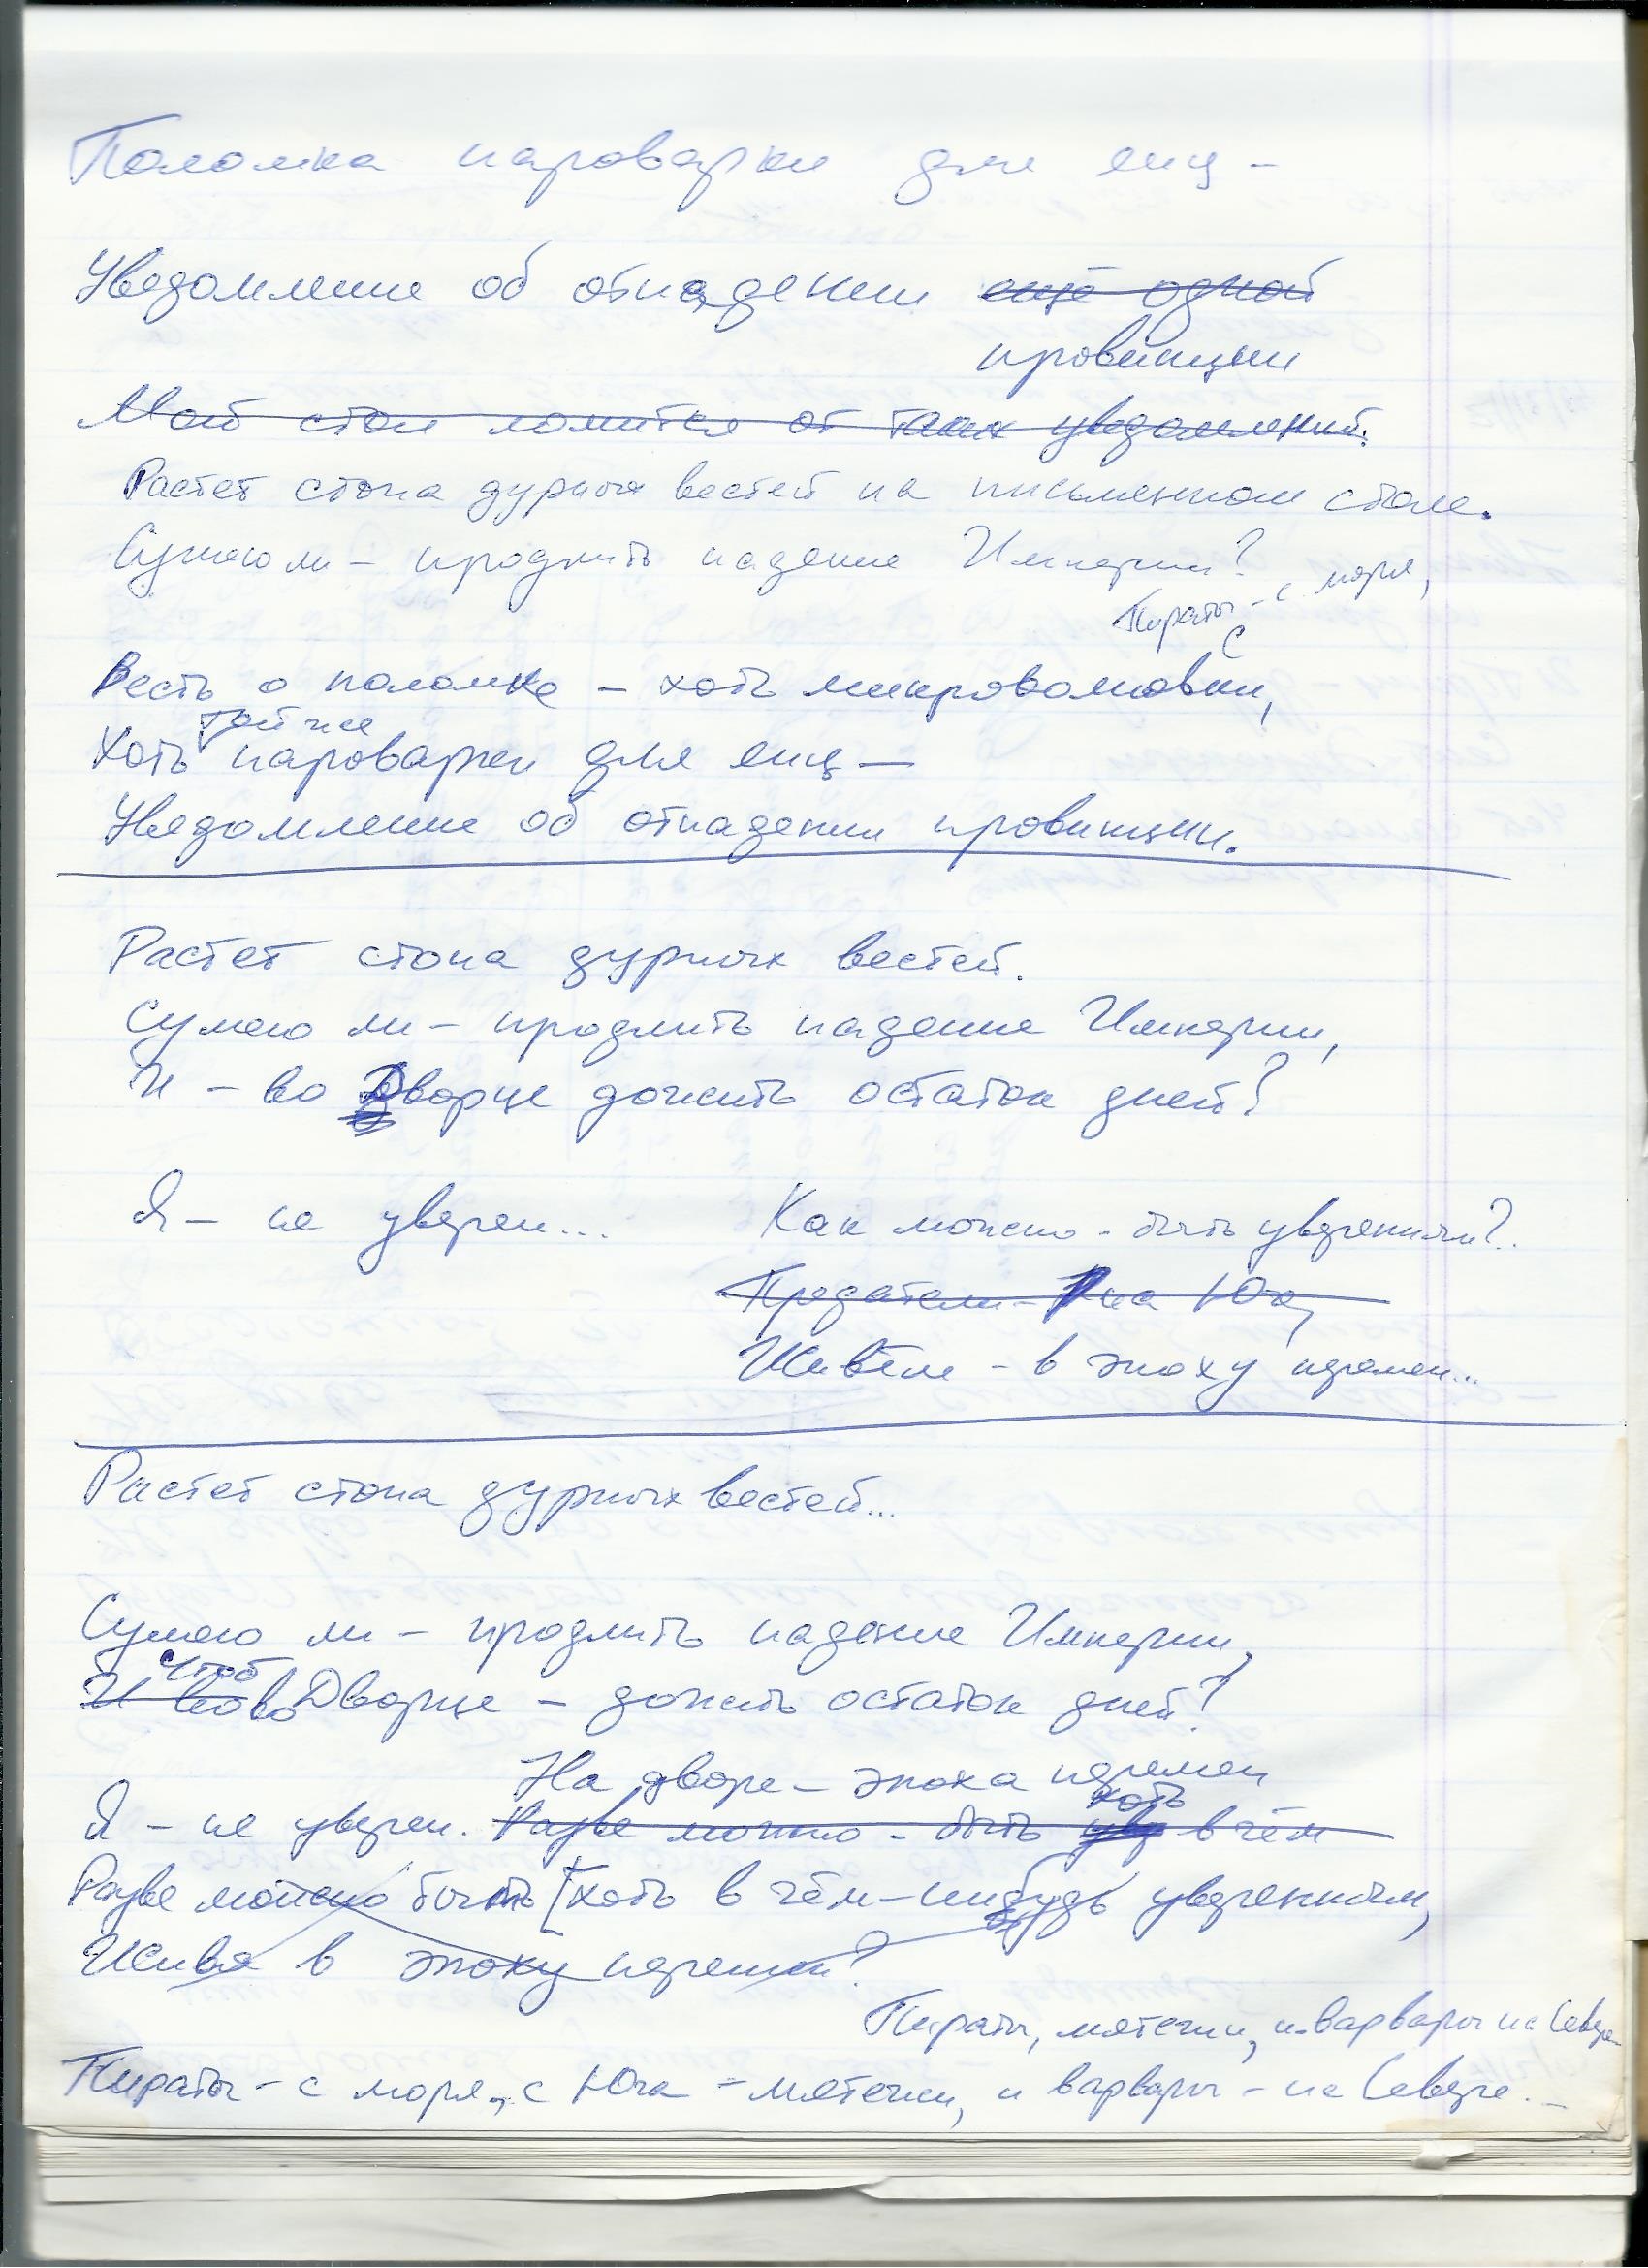 Поломка пароварки для яиц –
Уведомление об отпадении ещё одной
провинции
Мой стол ломится от таких уведомлений.
Растет стопа дурных вестей на письменном столе.
Сумею ли – продлить падение Империи?
Пираты – с моря,
с
Весть о поломке – хоть микроволновки,
той же
Хоть пароварки для яиц –
Уведомление об отпадении провинции.
Растет стопа дурных вестей.
Сумею ли – продлить падение Империи,
И – во Дворце дожить остаток дней?
Я – не уверен... Как можно – быть уверенным?..
Предатели – на Юге,
Живём – в эпоху перемен...
Растет стопа дурных вестей...
Сумею ли – продлить падение Империи,
Чтоб
И во во Дворце – дожить остаток дней?
На дворе – эпоха перемен
хоть
Я – не уверен. Разве можно – быть ув в чём
Разве можно быть [хоть в чём-нибудь уверенным,
Живя в эпоху перемен?
Пираты, мятежи, и варвары на Севере
Пираты – с моря, с Юга – мятежи, и варвары – на Севере...